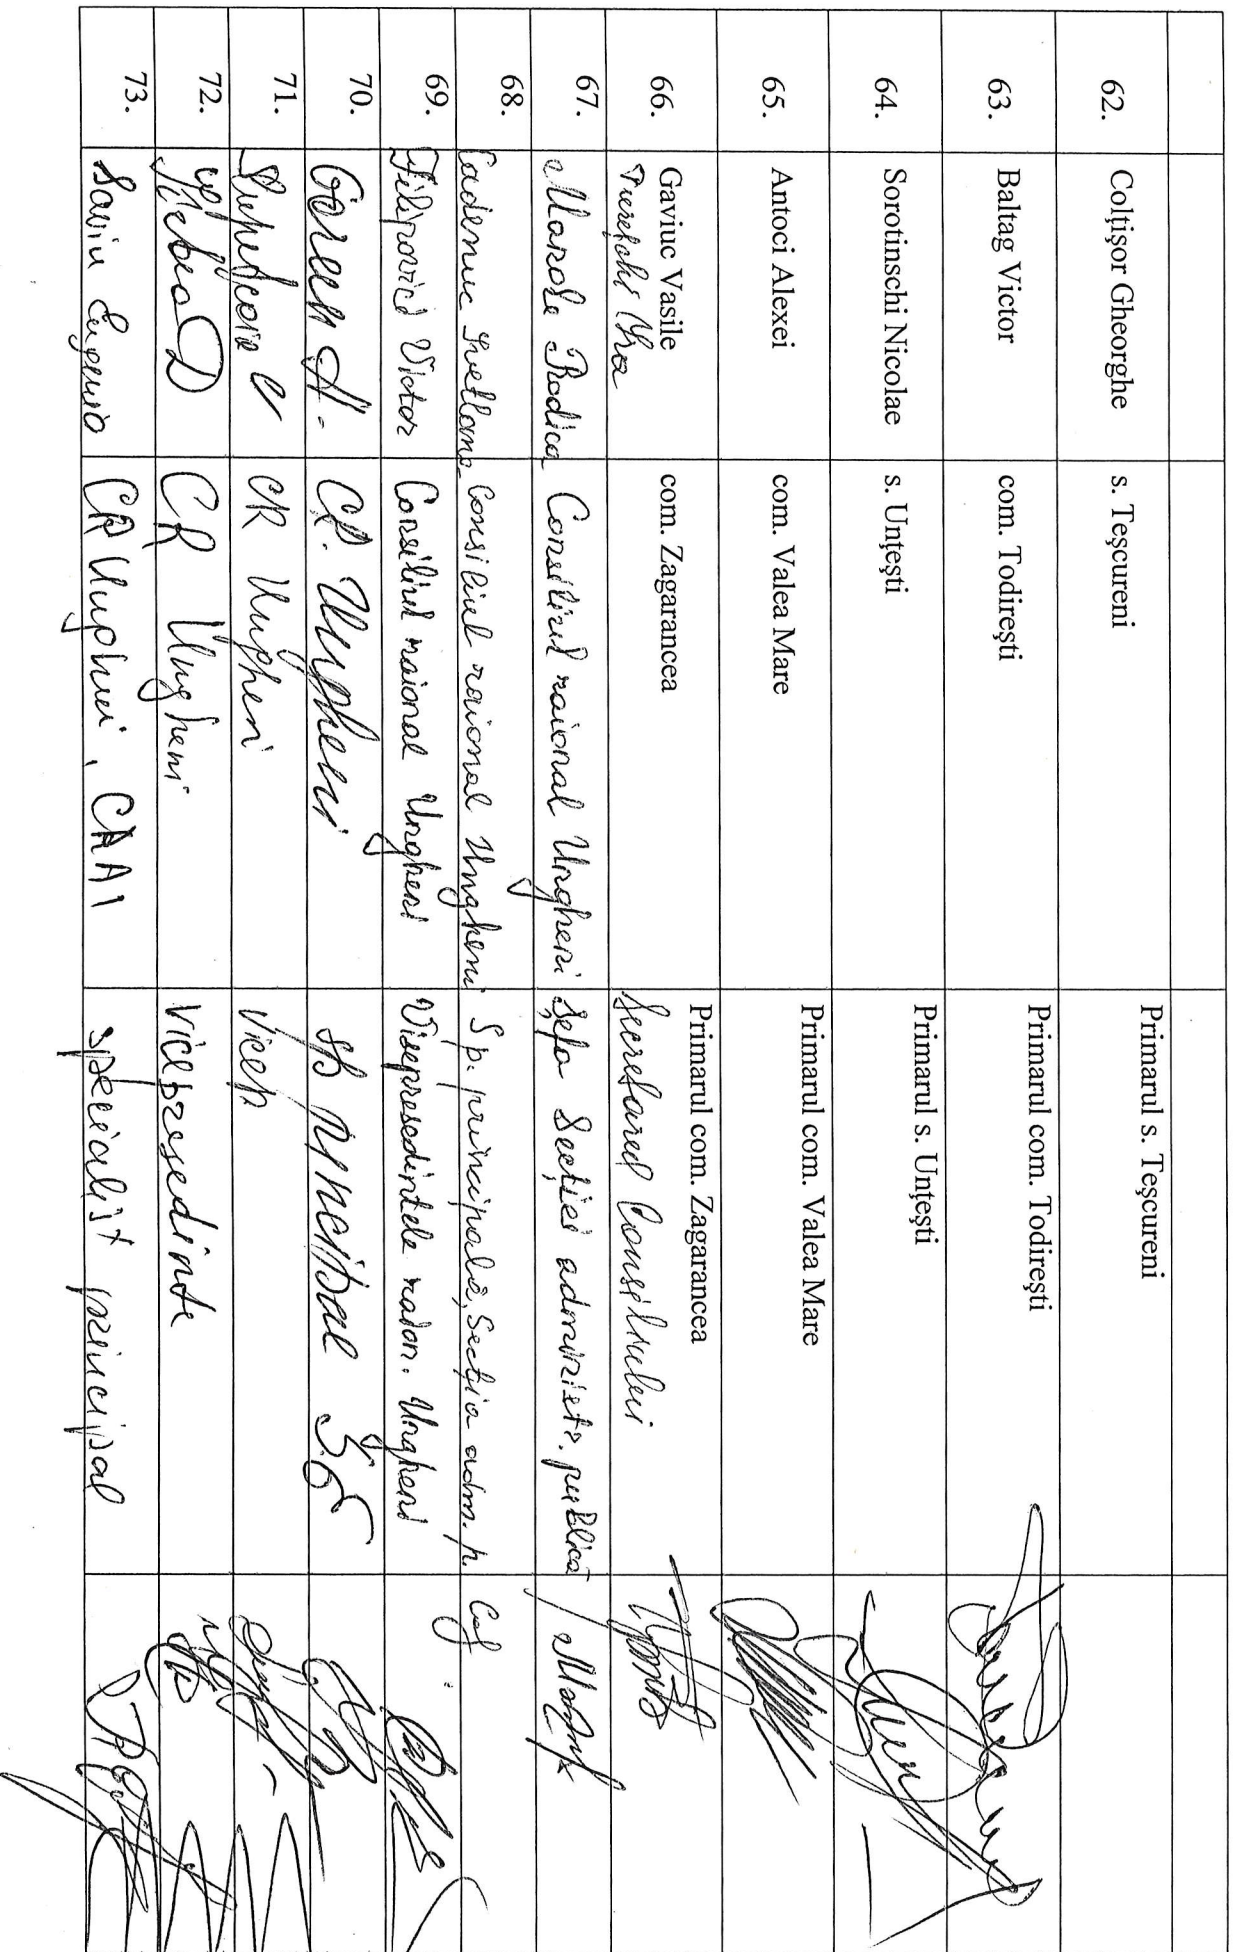 62. Colţişor Gheorghe s. Teşcureni Primarul s. Teşcureni
63. Baltag Victor com. Todireşti Primarul com. Todireşti
64. Sorotinschi Nicolae s. Unţeşti Primarul s. Unţeşti
65. Antoci Alexei com. Valea Mare Primarul com. Valea Mare
66. Gaviuc Vasile com. Zagarancea Primarul com. Zagarancea
Secretarul Consiliului
67. Manole Rodica Consiliul raional Ungheni Şefa Secţiei administr. publică
68. Svetlana Consiliul raional Ungheni Sp. principală, Secţia adm. p.
69. Filipovici Victor Consiliul raional Ungheni Vicepreşedintele raion. Ungheni
70. CR. Ungheni sp principal
71. CR Ungheni Vicep
72. CR Ungheni Vicepreşedinte
73. Saviu Eugenia CR Ungheni, CAAI specialist principal